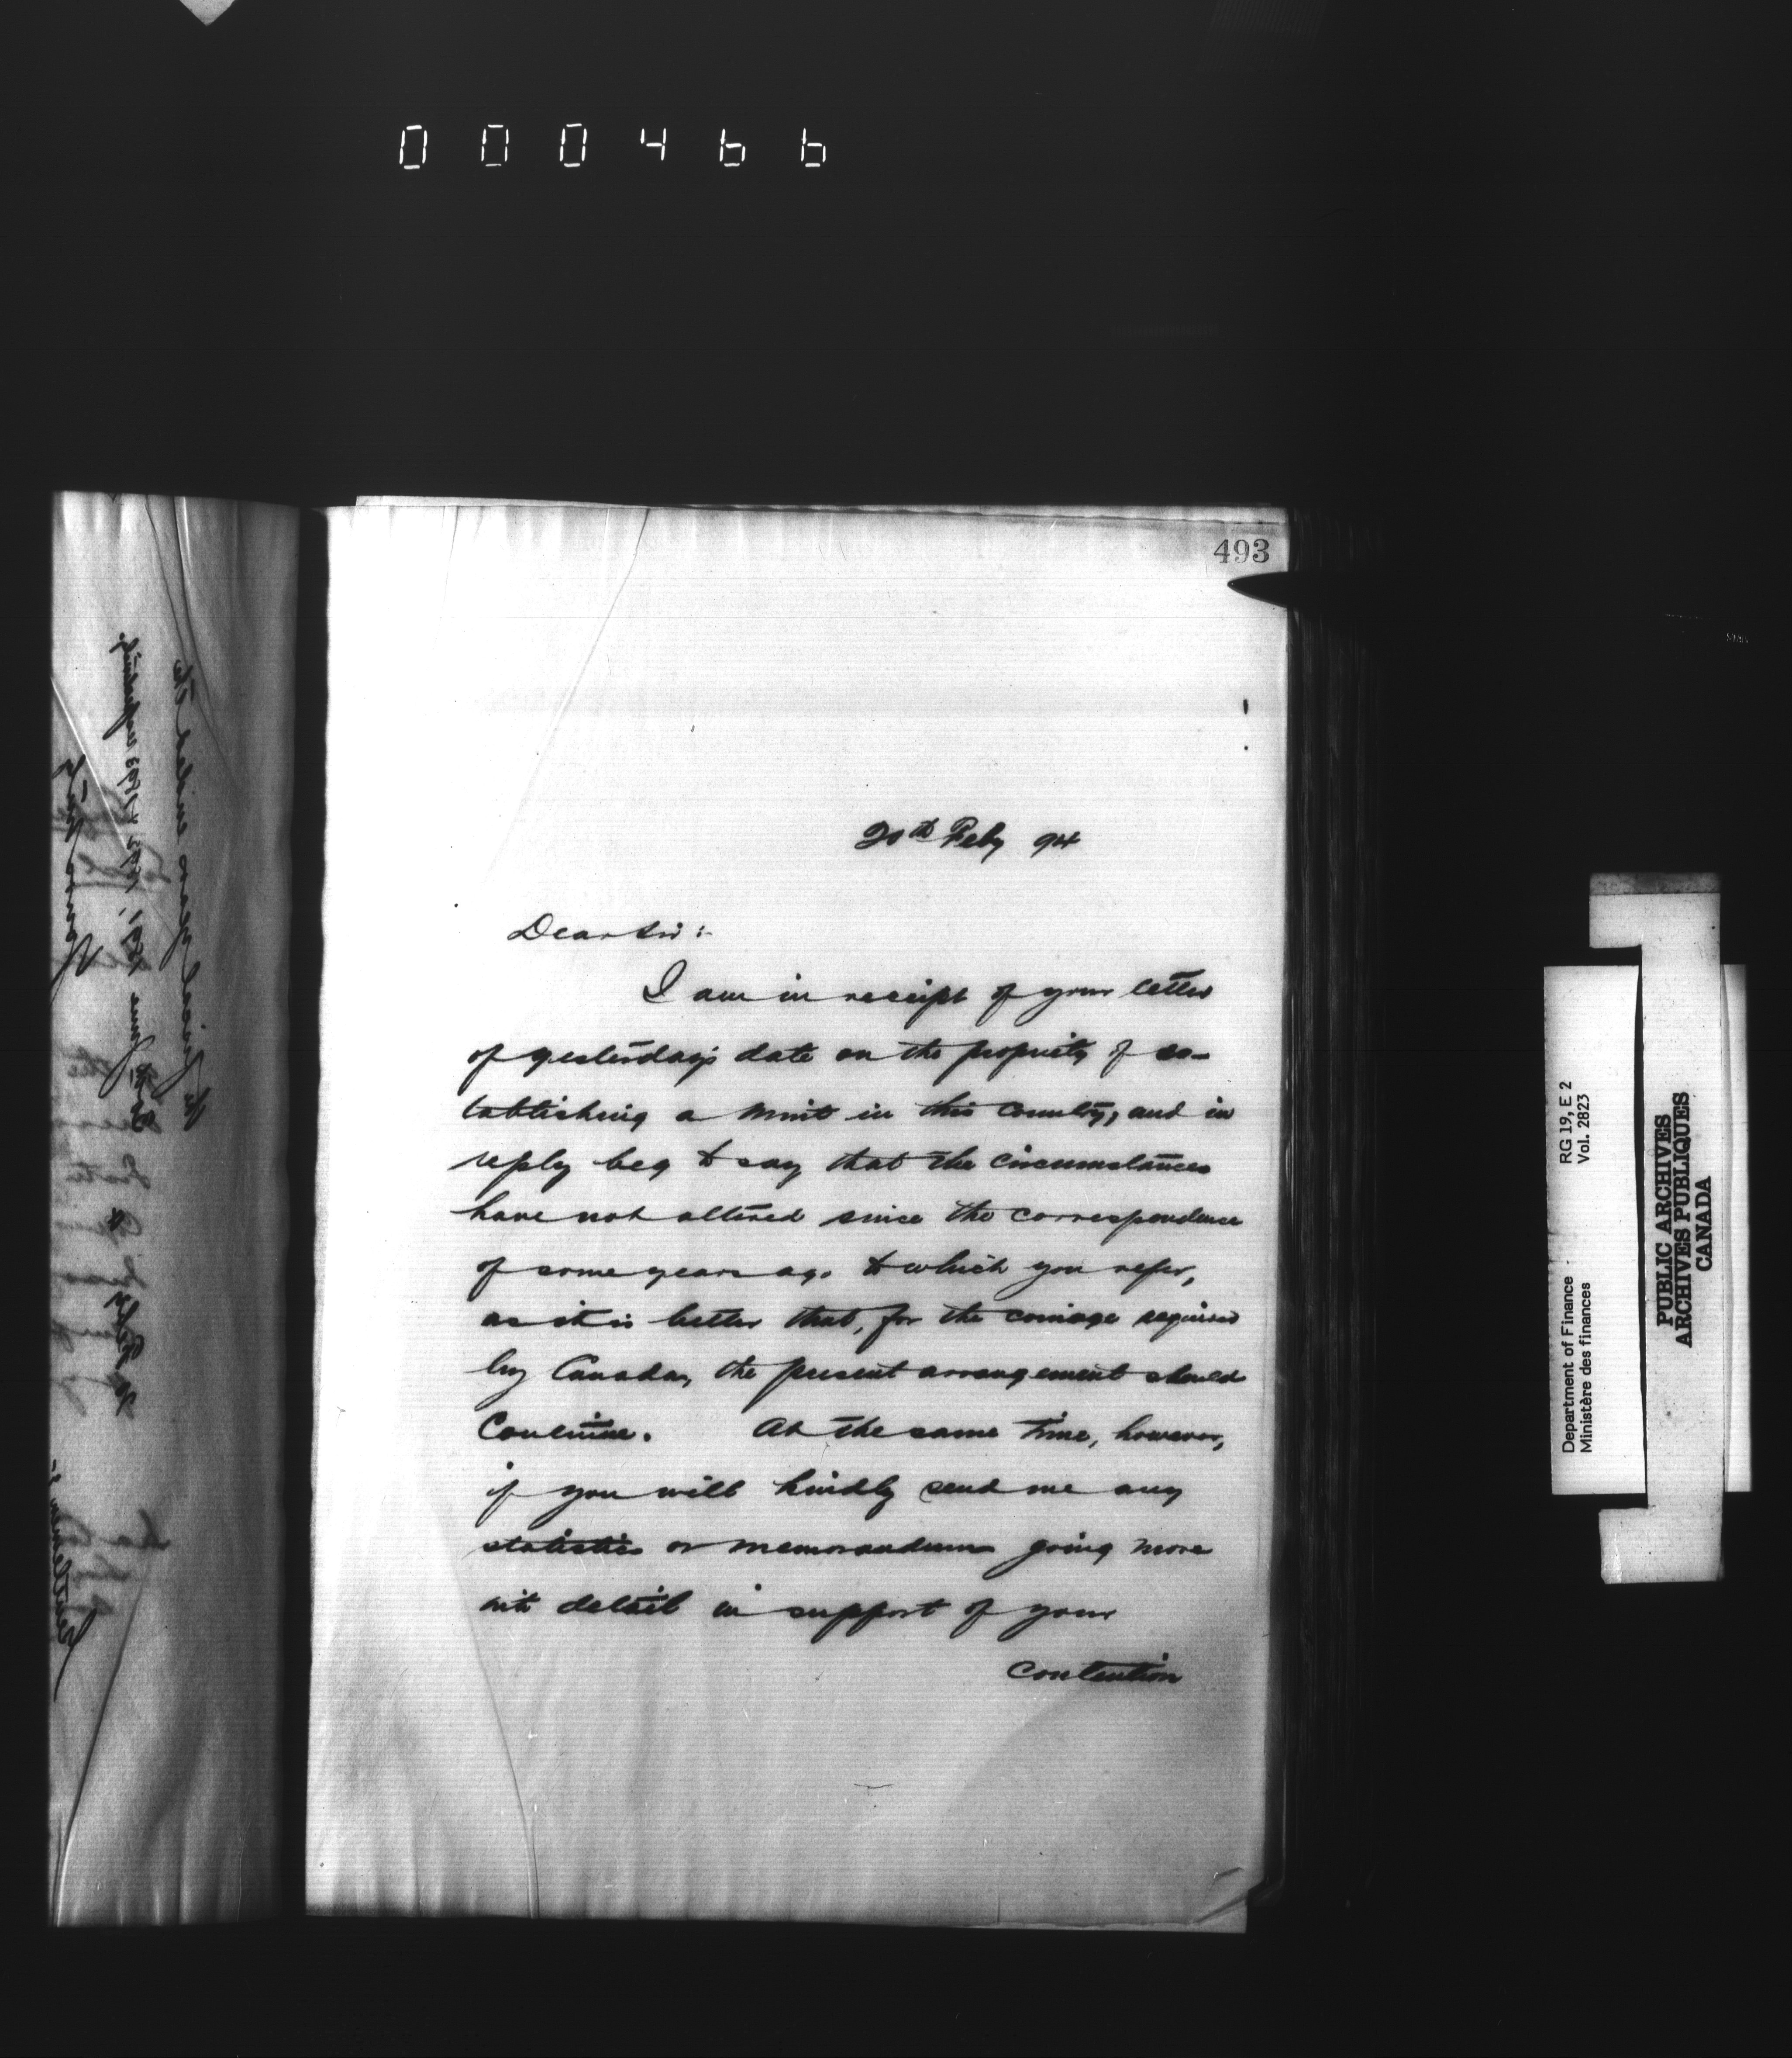 000466
493
20th Feby 94
Dear Sir :-
I am in receipt of your letter
of yesterday's date on the propriety of es-
tablishing a Mint in this Country, and in
reply beg to say that the circumstances
have not altered since the correspondence
of some years ago to which you refer,
as it is better that, for the coinage required
by Canada, the present arrangement should
Continue. At the same time, however,
if you will kindly send me any
statistics or memorandum going more
into detail in support of your
contention
RG 19, E 2
Vol. 2823
Department of Finance
Ministère des finances
PUBLIC ARCHIVES
ARCHIVES PUBLIQUES
CANADA